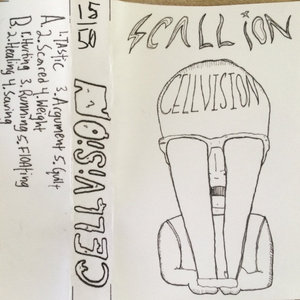 SCALLION
CELLVISION
15/50
CELLVISION
A. 1. Tastic 3. Argument 5. Guilt
2. Scared 4. Weight
B. 1. Hurting 3. Running 5. FlOAting
2. Healing 4. Saving